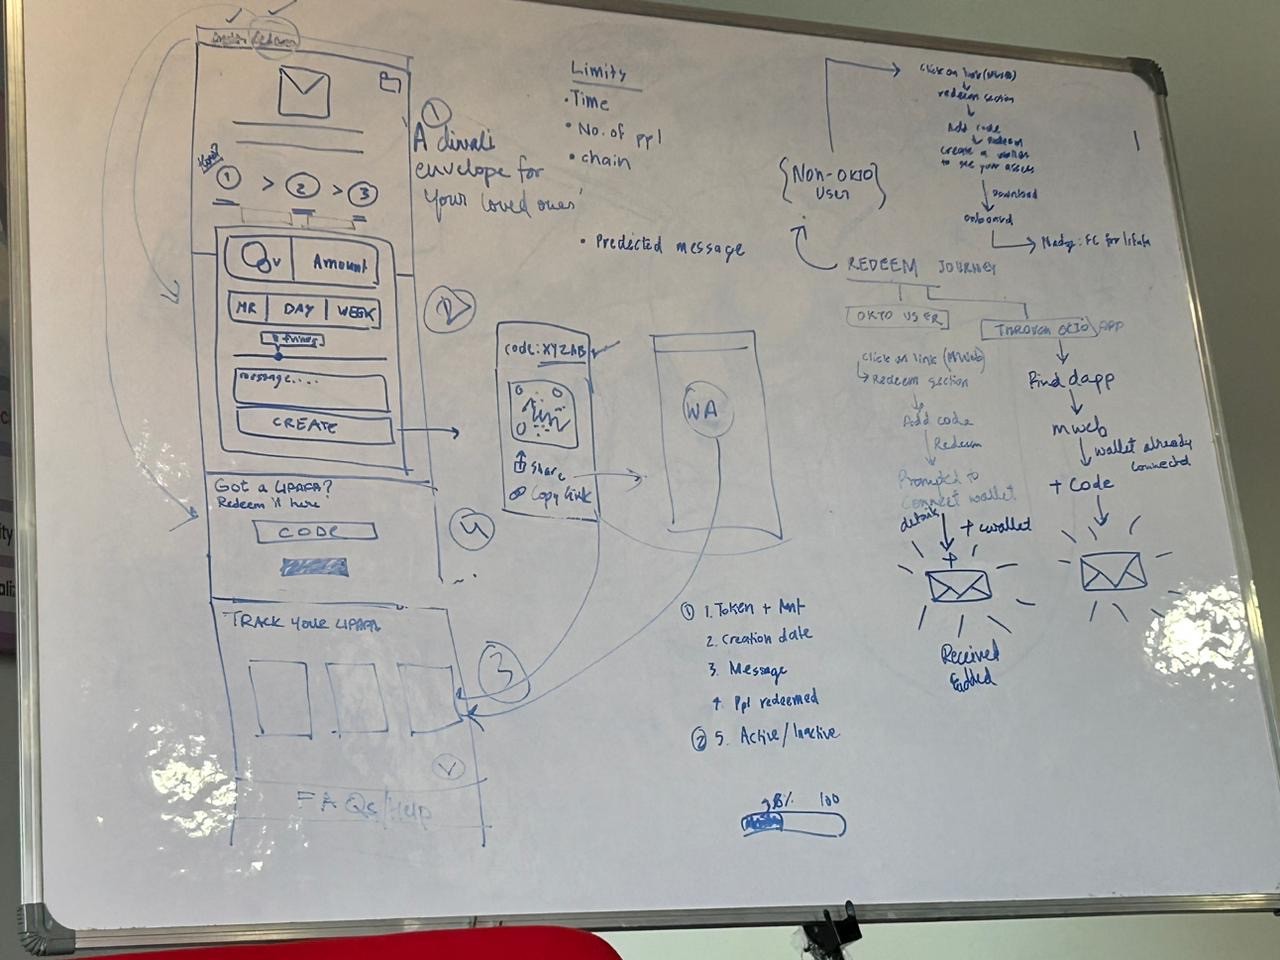 Redeem
How?
1 > 2 > 3
Amount
HR DAY WEEK
message....
CREATE
Got a LIPAFA?
Redeem it here
CODE
TRACK YOUR LIPAFA
FAQs/Help
1
A diwali
envelope for
Your loved ones'
2
4
3
Limity
• Time
• No. of ppl
• chain
• Predicted message
code: XYZAB
Share
Copy link
WA
1 1. Token + Amt
2. Creation date
3. Message
4. Ppl redeemed
2 5. Active/Inactive
38% 100
{Non-OKTO
User}
Click on link (MWeb)
redeem section
Add code
Redeem
Create a wallet
to see your assets
Download
onboard
Nudge: FC for lifafa
REDEEM JOURNEY
OKTO USER
Click on link (MWeb)
Redeem section
Add code
Redeem
Prompted to
Connect wallet
details
+ wallet
Received
THROUGH OKTO APP
Find dapp
mweb
wallet already
connected
+ Code